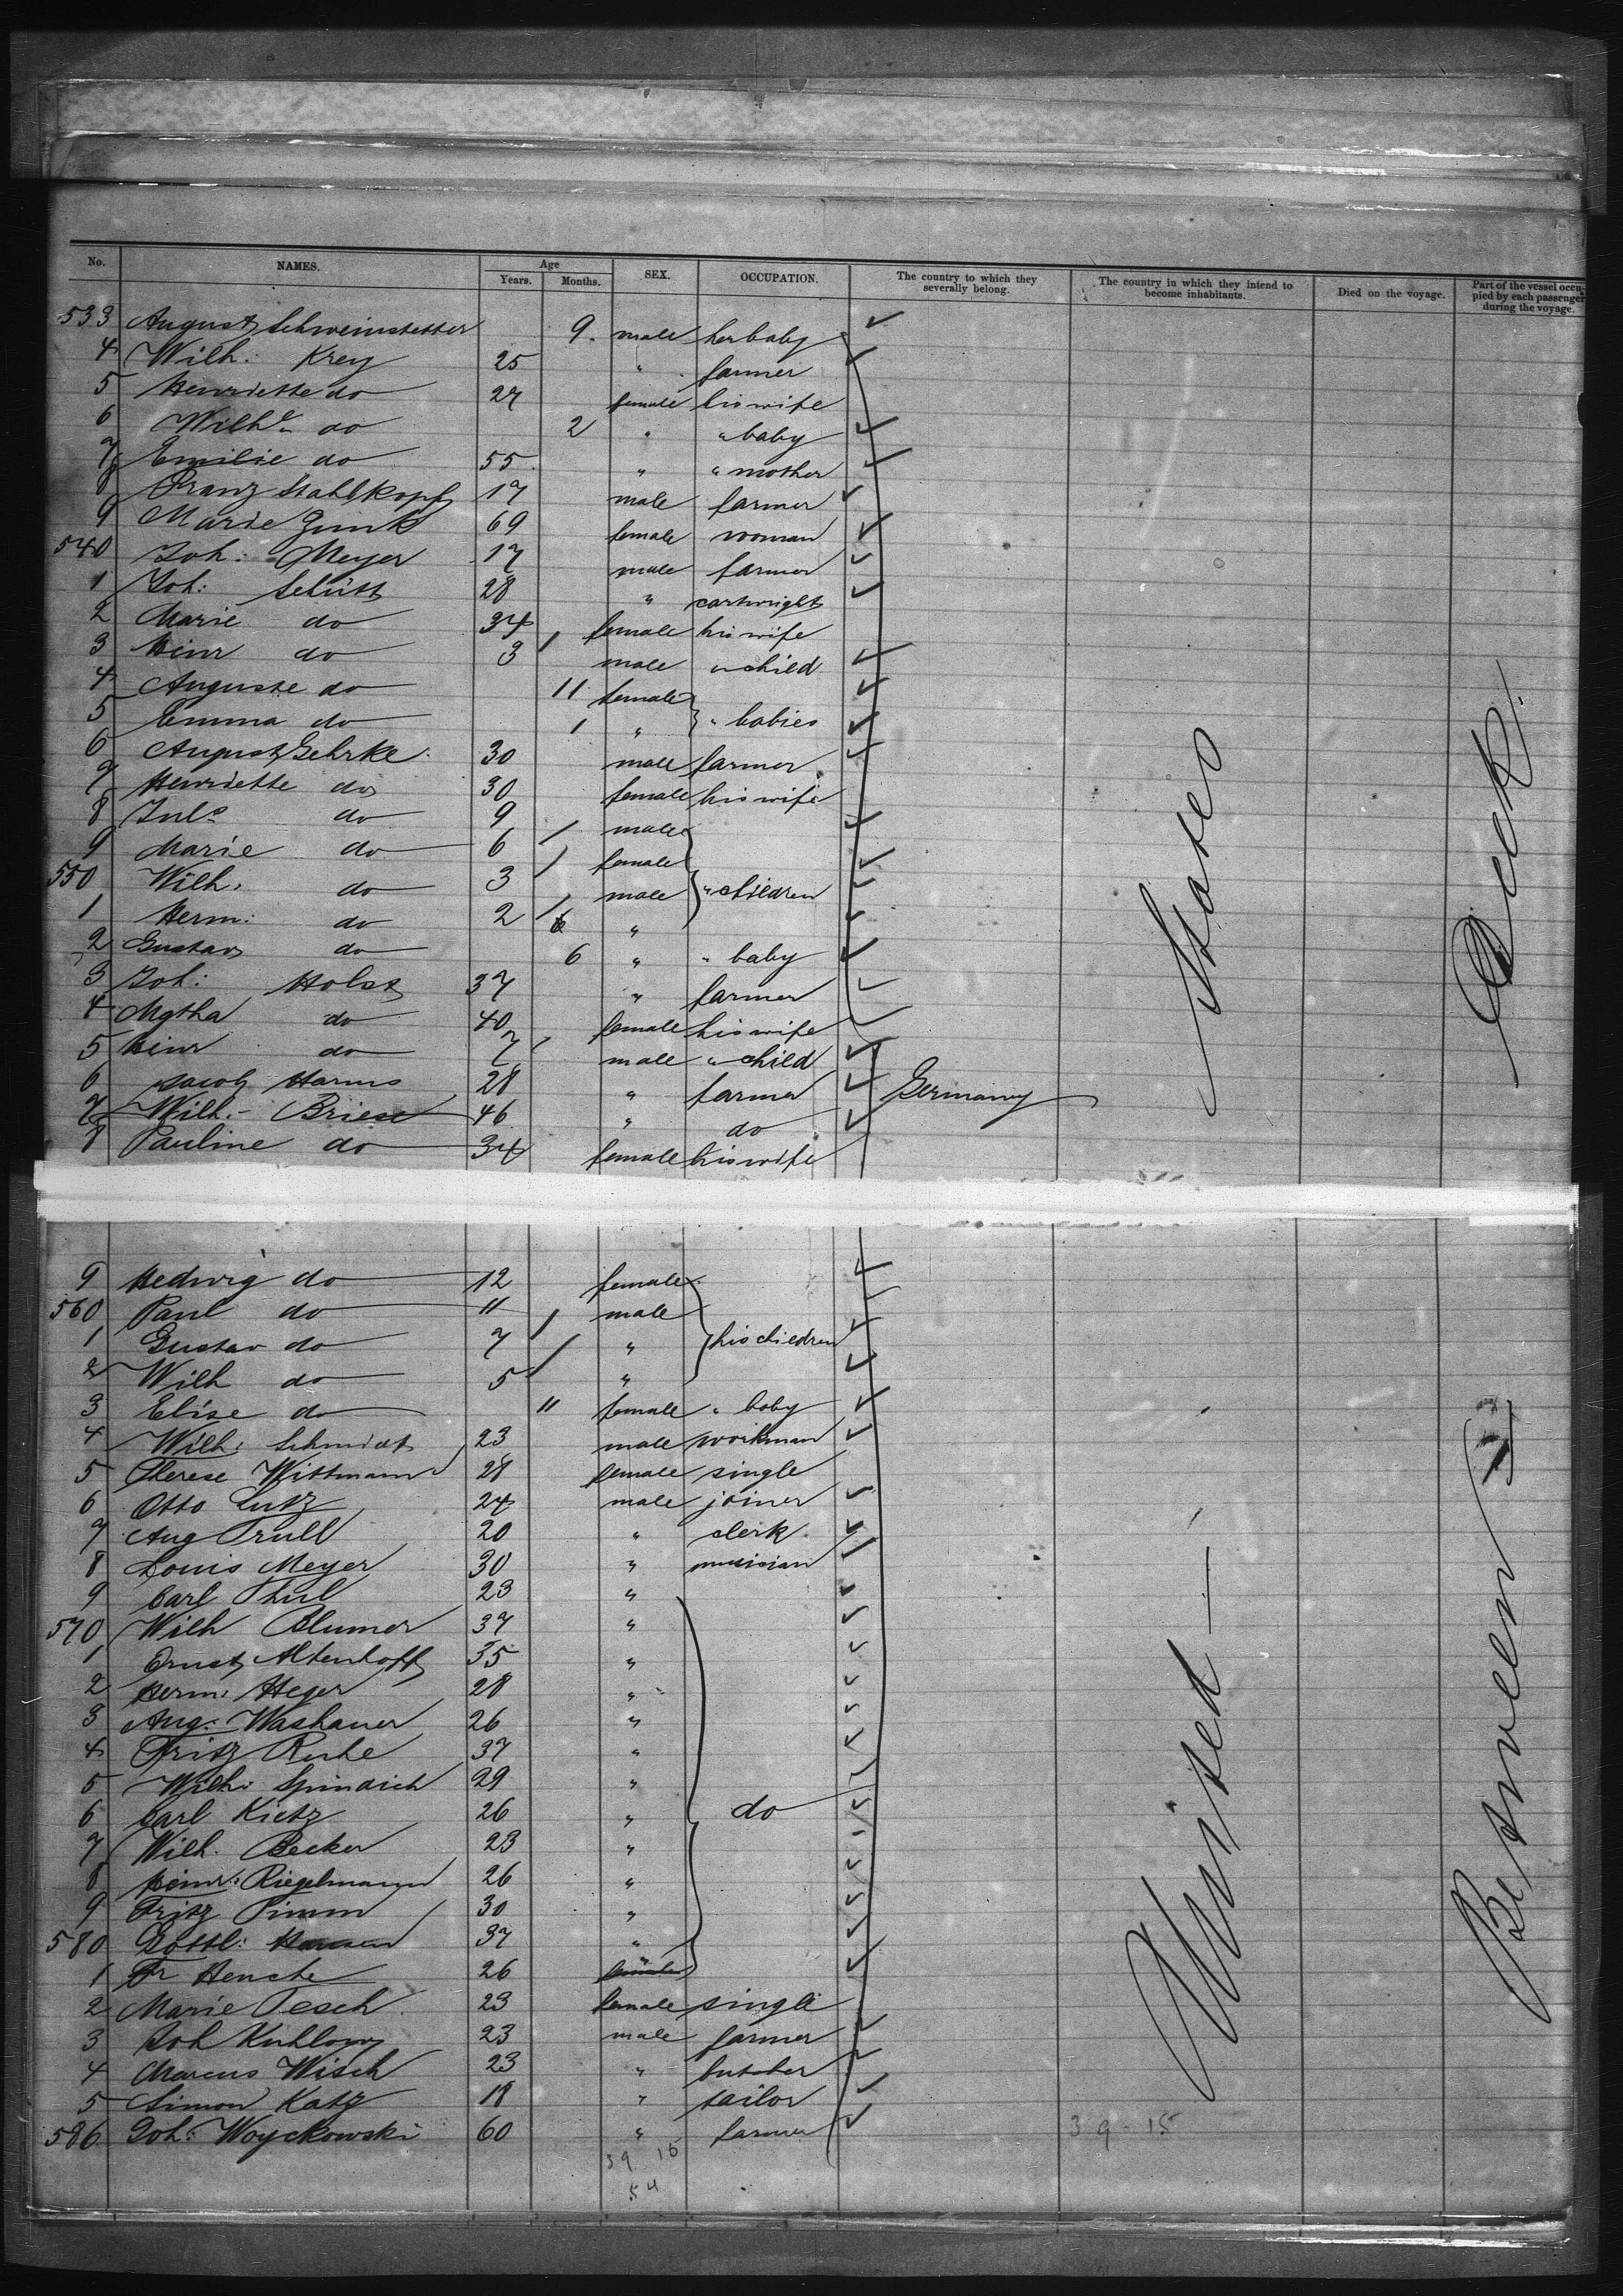 No. NAMES. Age Years. Months. SEX. OCCUPATION. The country to which they severally belong. The country in which they intend to become inhabitants. Died on the voyage. Part of the vessel occupied by each passenger during the voyage.
533 August Schweinstetter 9. male her baby
4 Wilh: Krey 25 " farmer
5 Henriette do 27 female his wife
6 Wilhe do 2 " " baby
7 Emilie do 55 " " mother
8 Franz Stahlkopf 17 male farmer
9 Marie Zink 69 female woman
540 Joh: Meyer 17 male farmer
1 Joh: Schütt 28 " cartwright
2 Marie do 34 female his wife
3 Heinr do 3 male " child
4 Auguste do 11 female
5 Emma do 1 " " babies
6 August Gehrke 30 male farmer
7 Henriette do 30 female his wife
8 Juls do 9 male
9 Marie do 6 female
550 Wilh. do 3 male " children
1 Herm: do 2 6 "
2 Gustav do 6 " " baby
3 Joh: Holst 37 " farmer
4 Mgtha do 40 female his wife
5 Heinr do 7 male " child
6 Jacob Harms 28 " farmer Germany
7 Wilh. Briese 46 " do
8 Pauline do 34 female his wife
9 Hedwig do 12 female
560 Paul do 11 male
1 Gustav do 7 " his children
2 Wilh do 5 "
3 Elise do 11 female " baby
4 Wilh: Schmidt 23 male workman
5 Therese Wittmann 28 female single
6 Otto Lutz 24 male joiner
7 Aug Trull 20 " clerk
8 Louis Meyer 30 " musician
9 Carl Thul 23 "
570 Wilh Blumer 37 "
1 Ernst Altenhoff 35 "
2 Herm: Heger 28 "
3 Aug: Washauer 26 "
4 Fritz Ruhe 37 "
5 Wilh: Spindich 29 "
6 Carl Kietz 26 " do
7 Wilh. Becker 23 "
8 Heinr: Riegelmann 26 "
9 Fritz Timm 30 "
580 Gottl: Hansen 37 "
1 Fr Hensche 26 "
2 Marie Pesch 23 female single
3 Joh Kuhlow 23 male farmer
4 Marcus Wisch 23 " butcher
5 Simon Katz 18 " tailor
586 Joh: Woyckowski 60 " farmer
United States
Between Deck
39 15
54
39-15